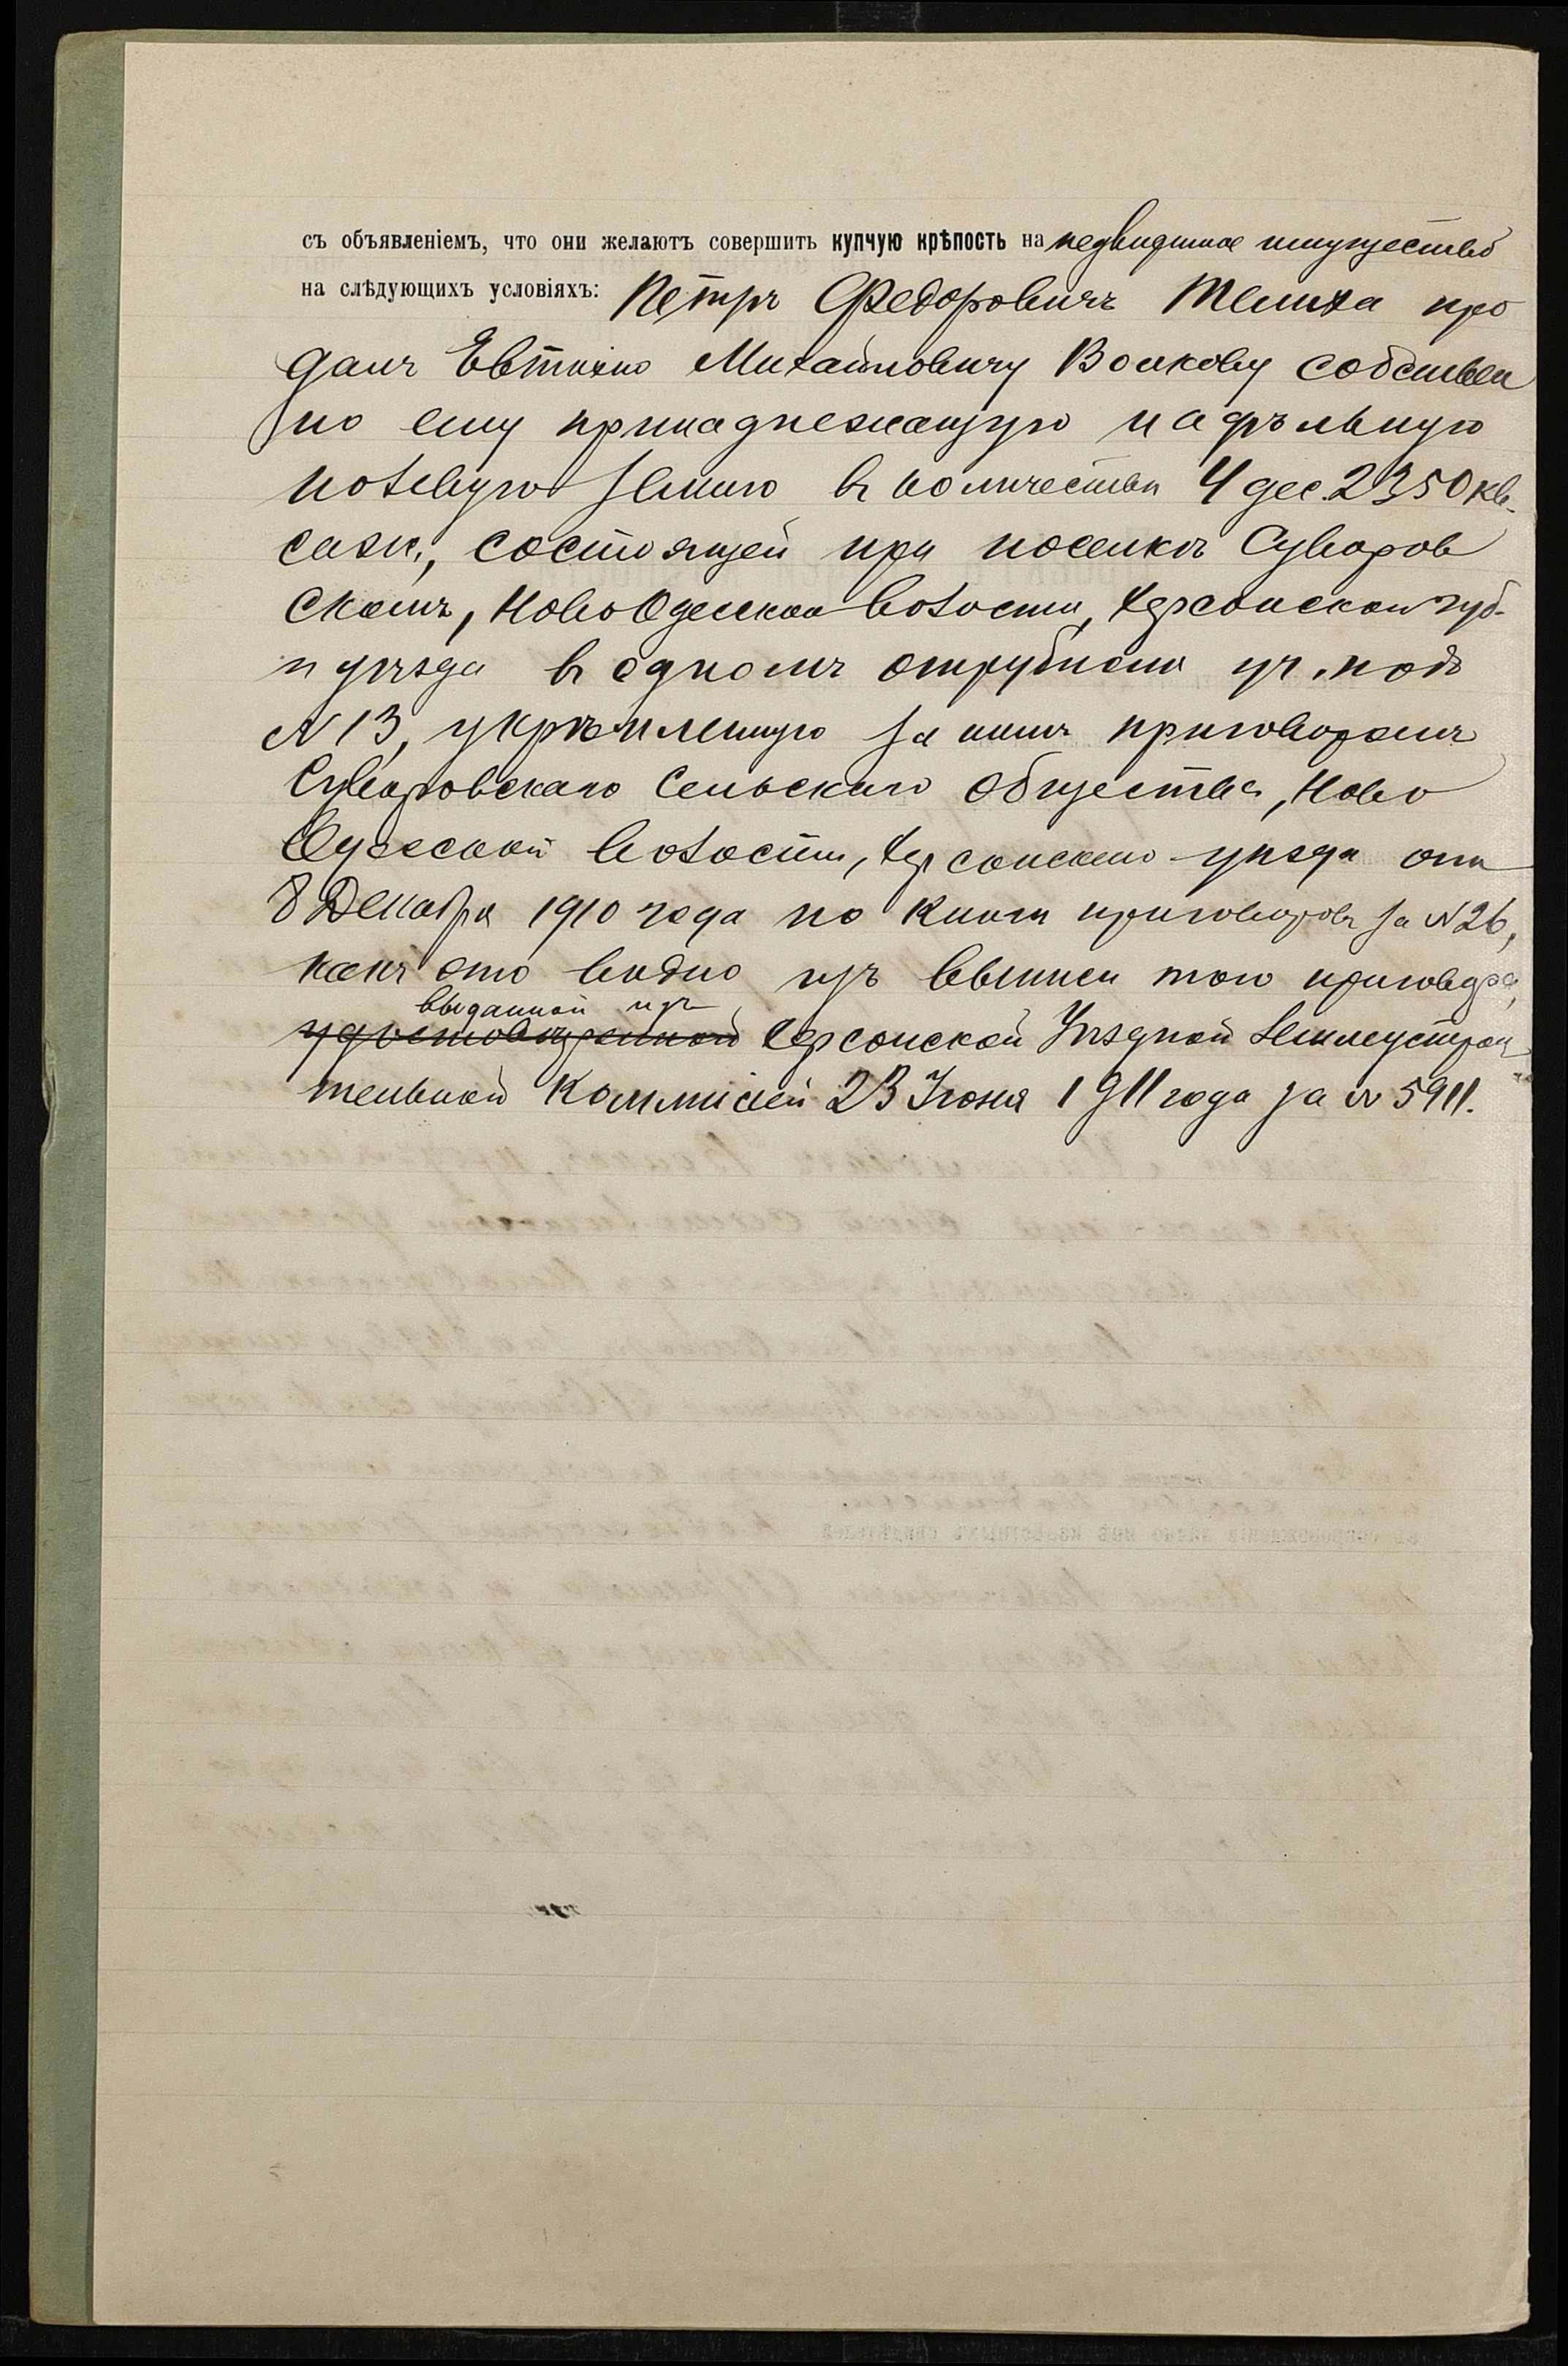 съ объявленіемъ, что они желаютъ совершить купчую крѣпость на недвижимое имущество
на слѣдующихъ условіяхъ: Петръ Федоровичъ Телиха про
далъ Евтихію Михайловичу Волкову собствен
но ему принадлежащую надѣльную
полевую землю въ количествѣ 4 дес. 2350 кв.
саж., состоящей при поселкѣ Суворов
скомъ, Ново Одесской волости, Херсонской губ.
и уѣзда въ одномъ отрубномъ уч. подъ
№ 13, укрѣпленную за нимъ приговоромъ
Суворовскаго Сельскаго Общества, Ново
Одесской волости, Херсонскаго уѣзда отъ
8 Декабря 1910 года по книгѣ приговоровъ за № 26,
какъ это видно изъ выписи того приговора,
выданной изъ
удостовѣренной Херсонской Уѣздной Землеустрои
тельной Коммисіей 23 Іюня 1911 года за № 5911.